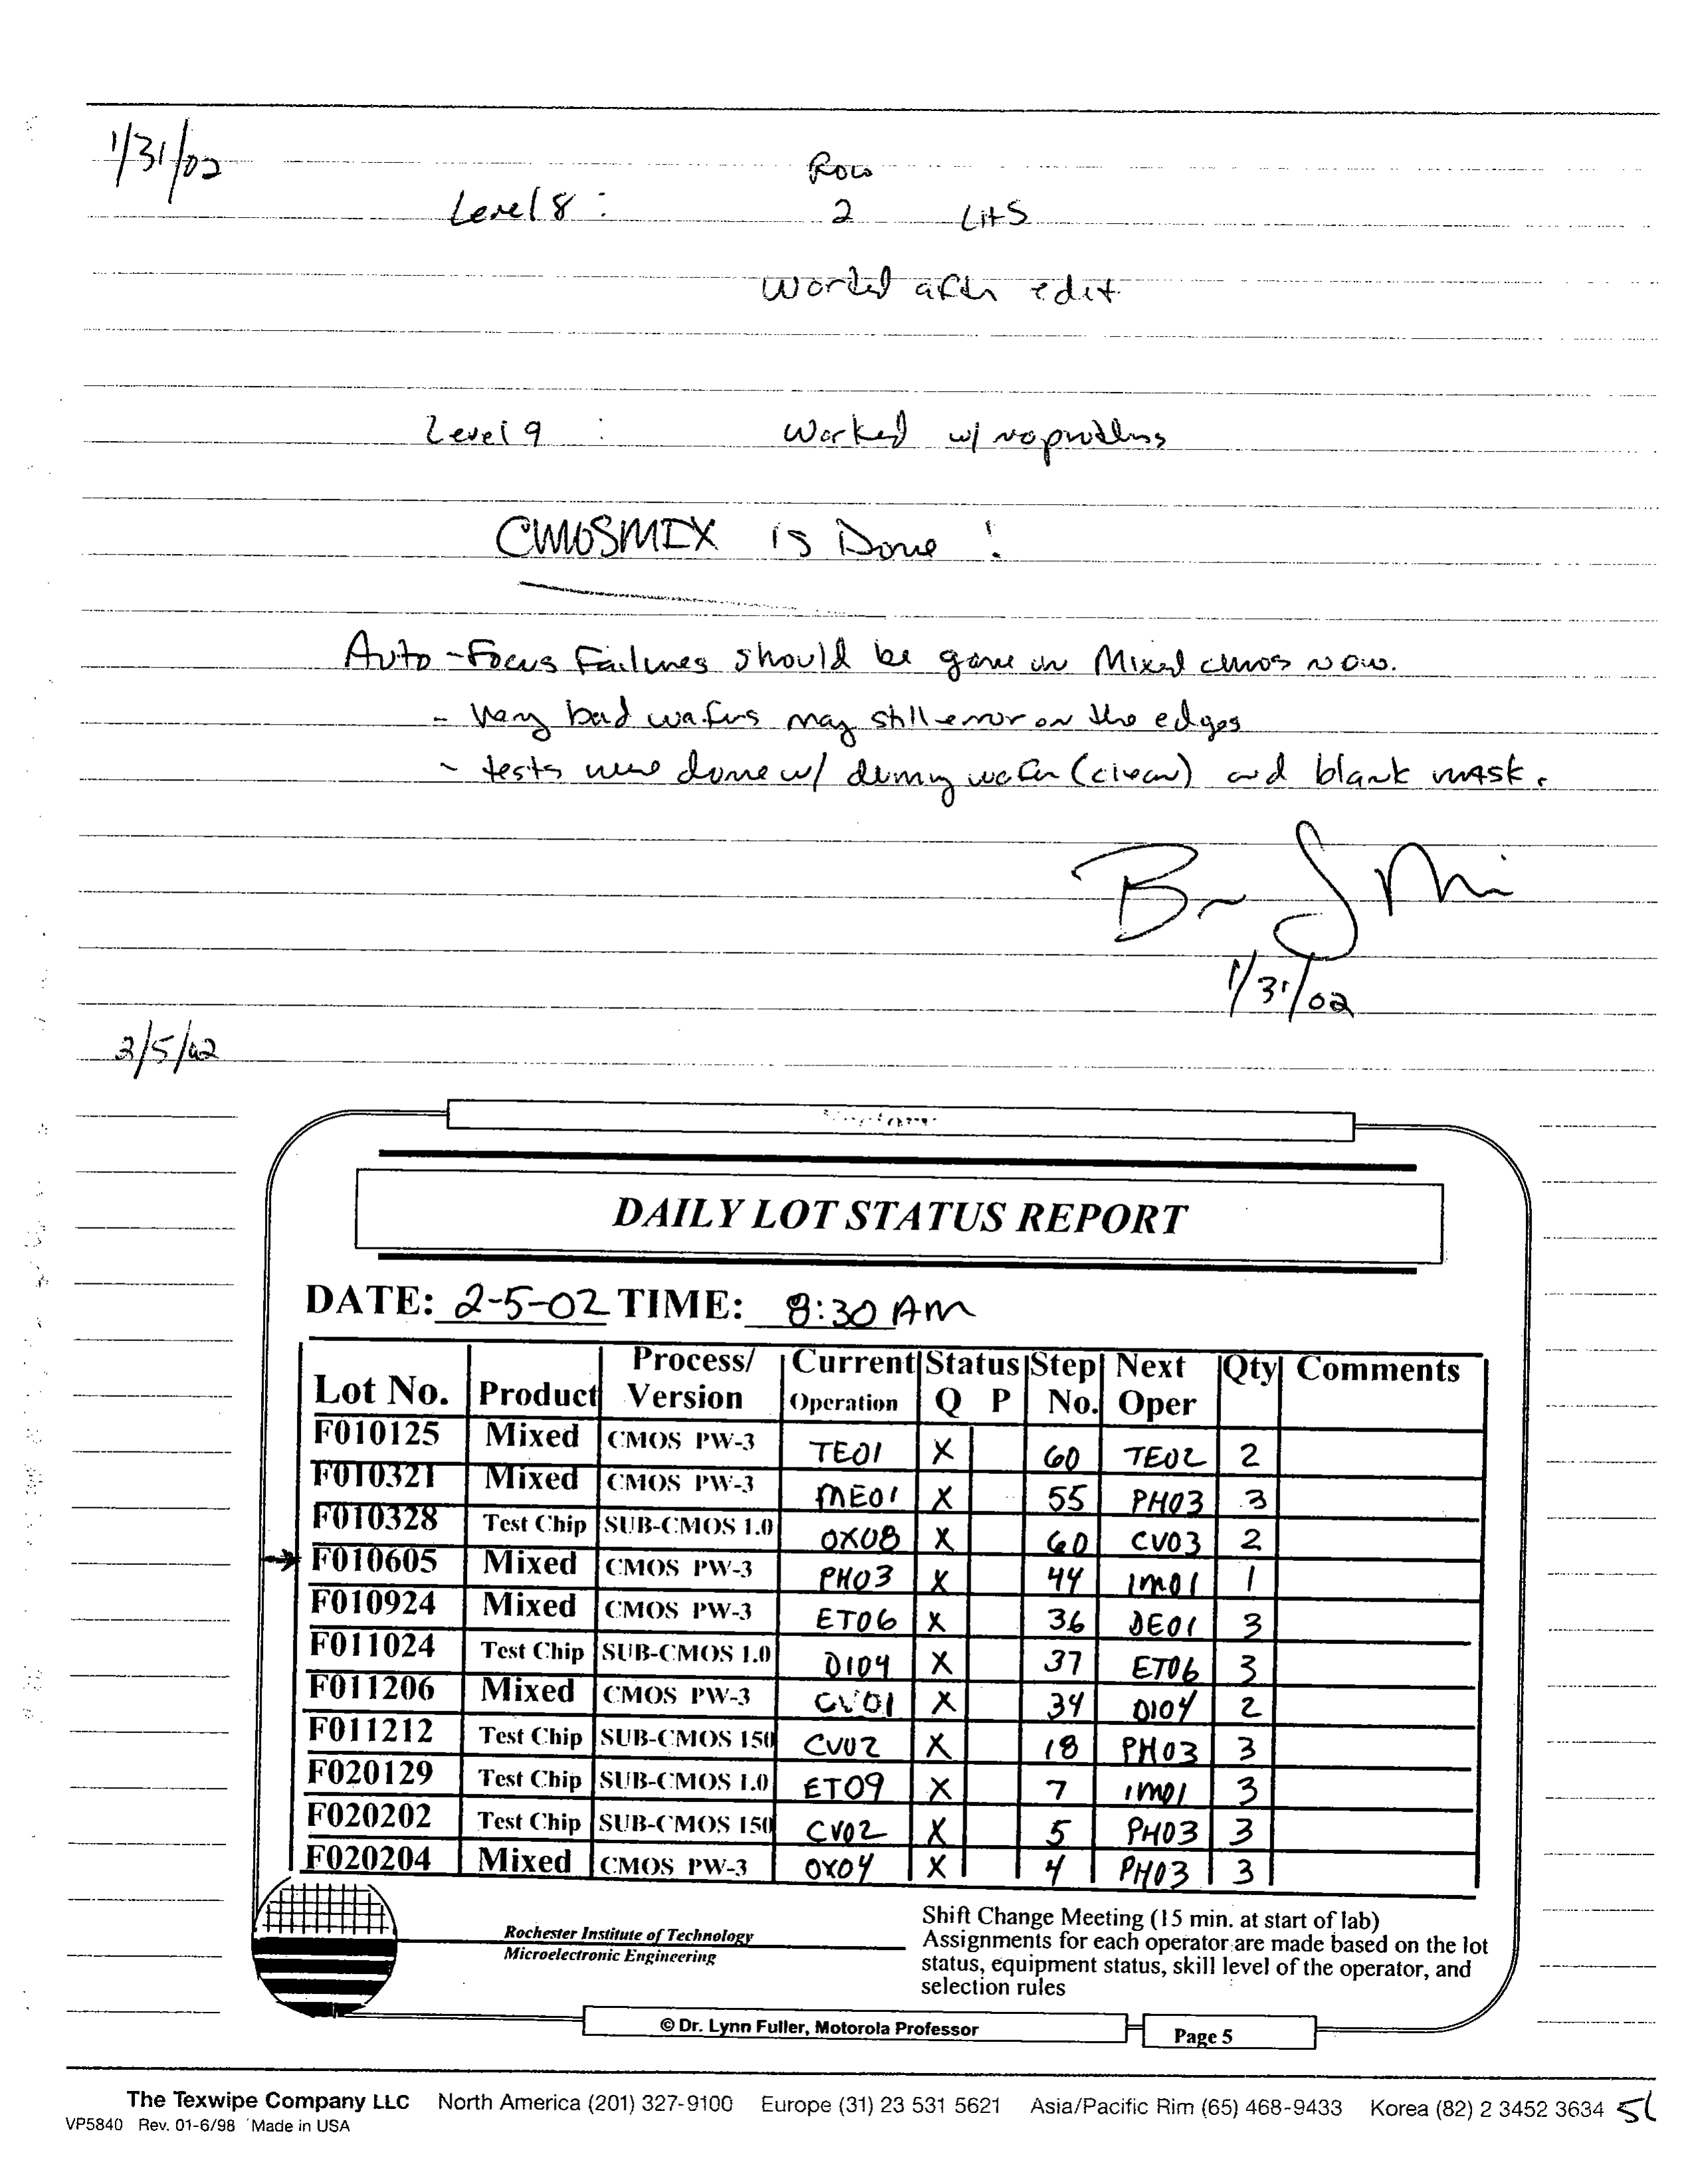 1/31/02
Row
Level 8 : 2
Worked after edit
Level 9 : Worked w/ no problems
CMOSMIX is Done !
Auto-Focus Failures should be gone in Mixed cmos now.
- Very bad wafers may still error on the edges
- tests were done w/ dummy wafer (clean) and blank mask.
1/31/02
2/5/02
DAILY LOT STATUS REPORT
DATE: 2-5-02 TIME: 8:30 AM
Lot No. Product Process/ Version Current Operation Status Q P Step No. Next Oper Qty Comments
F010125 Mixed CMOS PW-3 TE01 X 60 TE02 2
F010321 Mixed CMOS PW-3 ME01 X 55 PH03 3
F010328 Test Chip SUB-CMOS 1.0 OX08 X 60 CV03 2
F010605 Mixed CMOS PW-3 PH03 X 44 IM01 1
F010924 Mixed CMOS PW-3 ET06 X 36 DE01 3
F011024 Test Chip SUB-CMOS 1.0 DI04 X 37 ET06 3
F011206 Mixed CMOS PW-3 CV01 X 34 DI04 2
F011212 Test Chip SUB-CMOS 150 CV02 X 18 PH03 3
F020129 Test Chip SUB-CMOS 1.0 ET09 X 7 IM01 3
F020202 Test Chip SUB-CMOS 150 CV02 X 5 PH03 3
F020204 Mixed CMOS PW-3 OX04 X 4 PH03 3
Rochester Institute of Technology
Microelectronic Engineering
Shift Change Meeting (15 min. at start of lab)
Assignments for each operator are made based on the lot
status, equipment status, skill level of the operator, and
selection rules
© Dr. Lynn Fuller, Motorola Professor
Page 5
The Texwipe Company LLC North America (201) 327-9100 Europe (31) 23 531 5621 Asia/Pacific Rim (65) 468-9433 Korea (82) 2 3452 3634
VP5840 Rev. 01-6/98 Made in USA